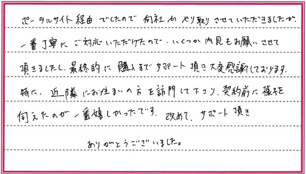 ポータルサイト経由でしたので何社かやり取りさせていただきましたが
一番丁寧にご対応いただけたので、いくつか内見もお願いさせて
頂きましたし、最終的に購入までサポート頂き大変感謝しております。
特に、近隣にお住まいの方を訪問して下さり、契約前に様子を
伺えたのが一番嬉しかったです。改めて、サポート頂き
ありがとうございました。